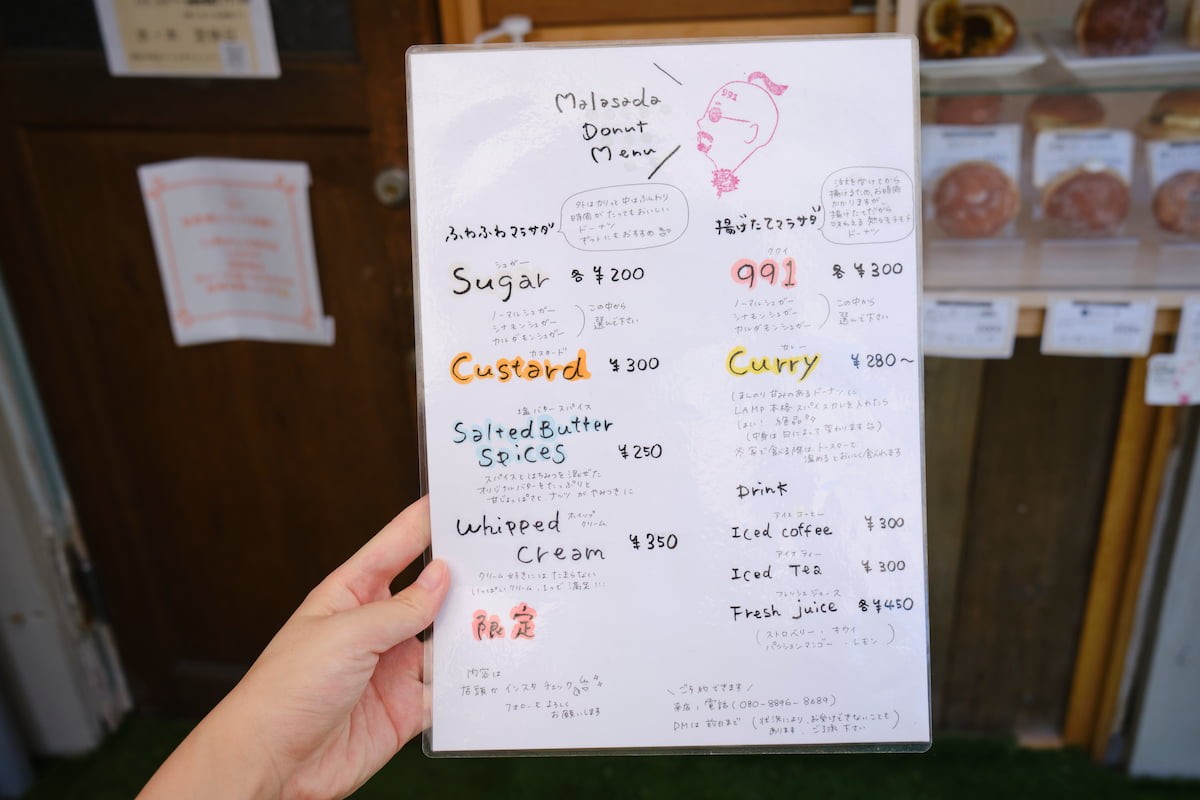 Malasada
Donut
Menu
991
ふわふわマラサダ
外はカリって中はふんわり
時間がたってもおいしい
ドーナン
シュガー
Sugar 各¥200
ノーマルシュガー
シナモンシュガー
カルダモンシュガー
この中から
選んで下さい
カスタード
Custard ¥300
塩バタースパイス
Salted Butter
Spices ¥250
スパイスとはちみつを混ぜた
オリジナルバターをたっぷりと
甘じょっぱさとナッツがやみつきに
ホイップ
クリーム
Whipped
Cream ¥350
クリーム好きにはたまらない
いっぱいクリーム
限定
内容は
店頭かインスタチェック
フォローもよろしく
お願いします
揚げたてマラサダ
注文を受けてから
揚げるため、お時間
かかりますが、
揚げたてだから
ドーナン
ククイ
991 各¥300
ノーマルシュガー
シナモンシュガー
カルダモンシュガー
この中から
選んで下さい
カレー
Curry ¥280〜
ほんのり甘みのあるドーナンに
LAMP本格スパイスカレーを入れたら
はい! 絶品
(中身は日によって変わります)
※家で食べる際はトースターで
温めるとおいしく食べれます
Drink
アイスコーヒー
Iced coffee ¥300
アイスティー
Iced Tea ¥300
フレッシュジュース
Fresh juice 各¥450
(ストロベリー・キウイ
パッションマンゴー・レモン)
\ご予約できます/
来店、電話(080-8896-8689)
DMは前日まで (状況により、お受けできないことも
あります。ご了承下さい)